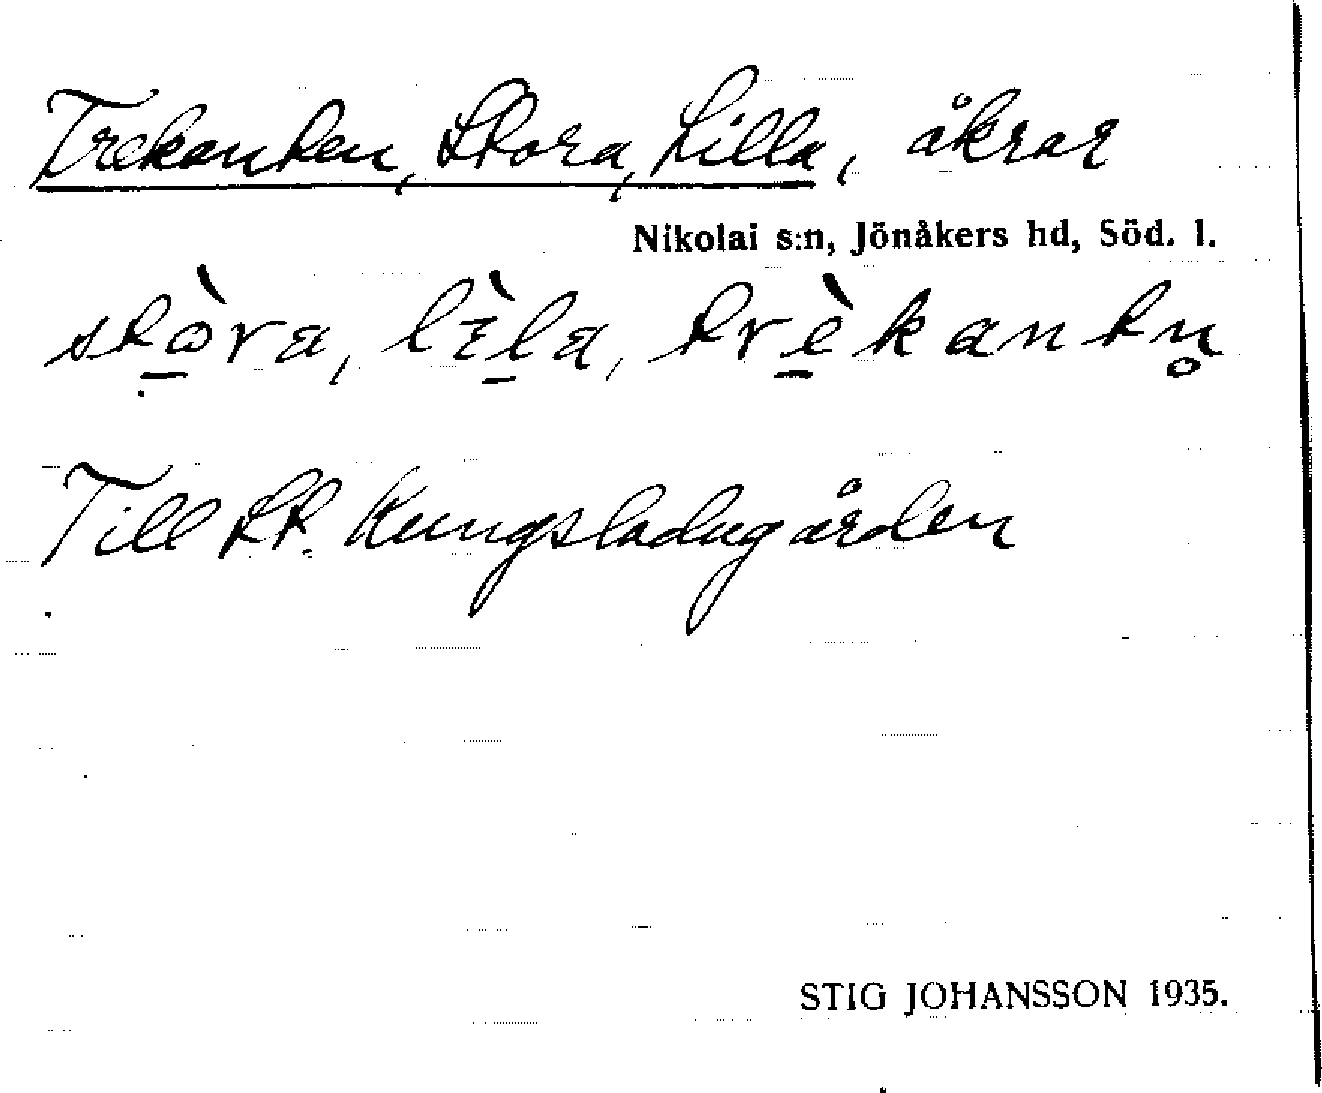 Trekanten, Stora, Lilla, åkrar
Nikolai s:n, Jönåkers hd, Söd. l.
stò̠ra, lɪ̀l̠a, trè̠kantn̥
Till kr. Kungsladugården
STIG JOHANSSON 1935.